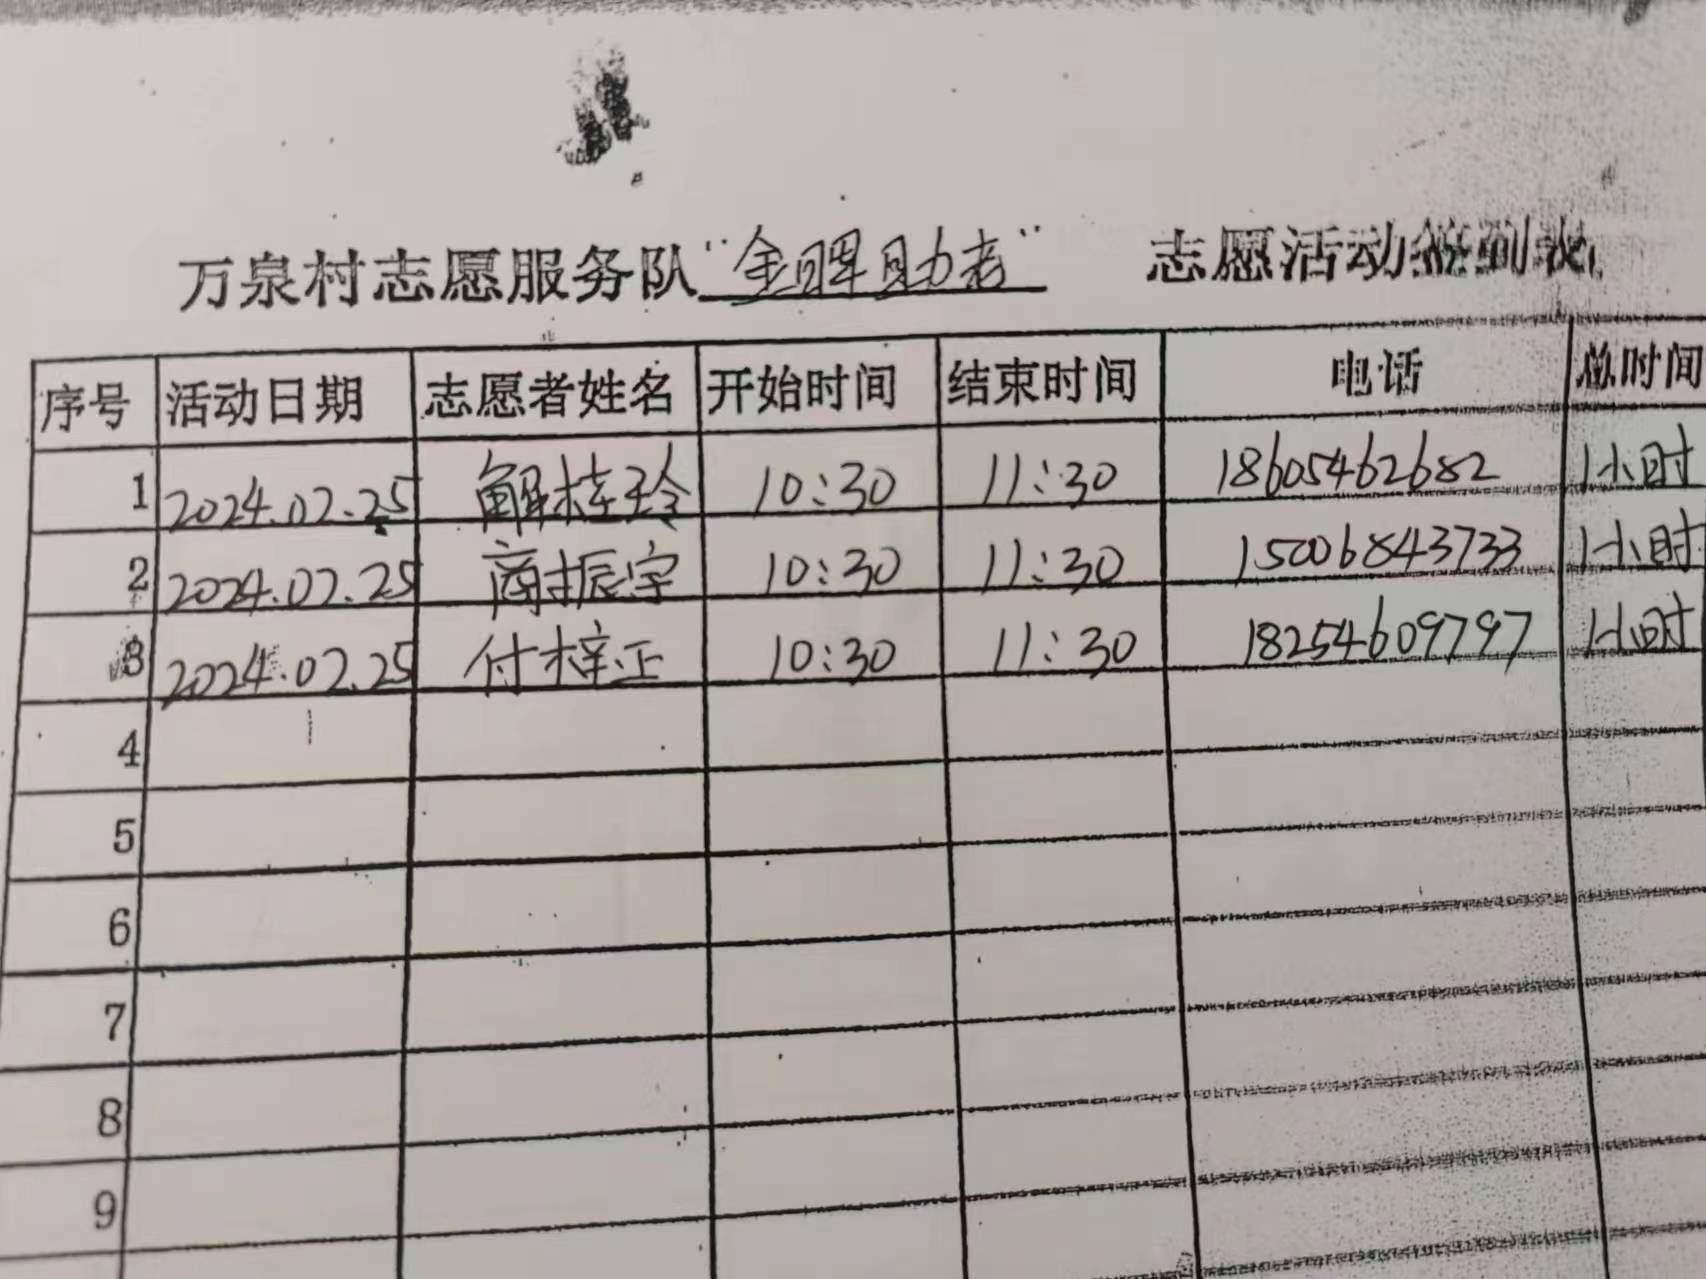 万泉村志愿服务队"金晖助老" 志愿活动签到表
序号 活动日期 志愿者姓名 开始时间 结束时间 电话 总时间
1 2024.02.25 解桂玲 10:30 11:30 18605462682 1小时
2 2024.02.25 商振宇 10:30 11:30 15006843733 1小时
3 2024.02.25 付梓正 10:30 11:30 18254609797 1小时
4
5
6
7
8
9